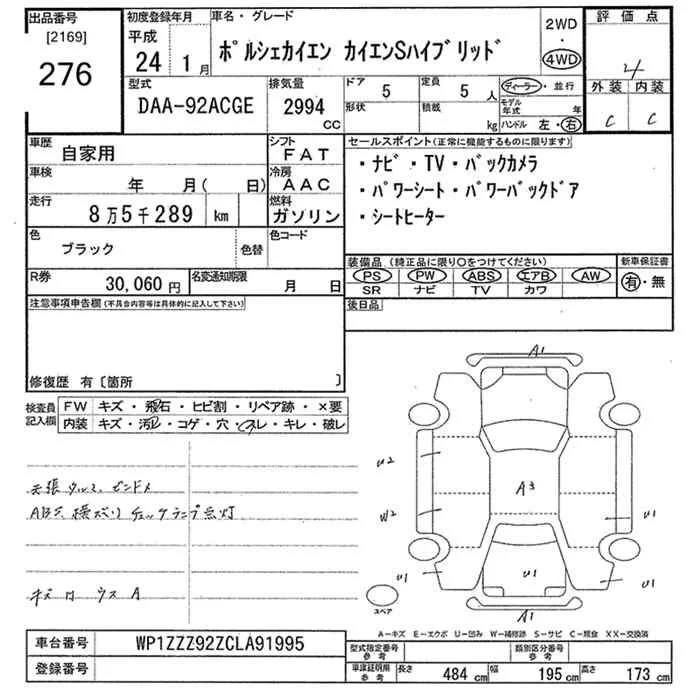 出品番号
[2169]
276
初度登録年月
平成
24 1月
車名・グレード
ポルシェカイエン カイエンSハイブリッド
2WD
・
4WD
評価点
4
外装 内装
C C
型式
DAA-92ACGE
排気量
2994
CC
ドア 5
形状
定員 5人
積載 kg
ディーラー・並行
モデル年式 年
ハンドル 左・右
車歴
自家用
シフト
FAT
車検
年 月( 日)
冷房
AAC
走行
8万5千289 km
燃料
ガソリン
色
ブラック
色替
色コード
R券
30,060円
名変通知期限
月 日
セールスポイント(正常に機能するものに限ります)
・ナビ・TV・バックカメラ
・パワーシート・パワーバックドア
・シートヒーター
装備品(純正品に限り○をつけてください)
PS PW ABS エアB AW
SR ナビ TV カワ
新車保証書
有・無
後日品
注意事項申告欄(不具合内容等は具体的に記入して下さい)
修復歴 有〔箇所 〕
検査員
記入欄
FW キズ・飛石・ヒビ割・リペア跡・×要
内装 キズ・汚レ・コゲ・穴・スレ・キレ・破レ
天張タルミ
ABS、横スベリ チェックランプ点灯
A1
U2
A3
W2
U1
U1
U1
U1
A1
スペア
A-キズ E-エクボ U-凹み W-補修跡 S-サビ C-腐食 XX-交換済
車台番号
WP1ZZZ92ZCLA91995
登録番号
型式指定番号
参考
類別区分番号
参考
車庫証明用
参考
長さ 484 cm 幅 195 cm 高さ 173 cm